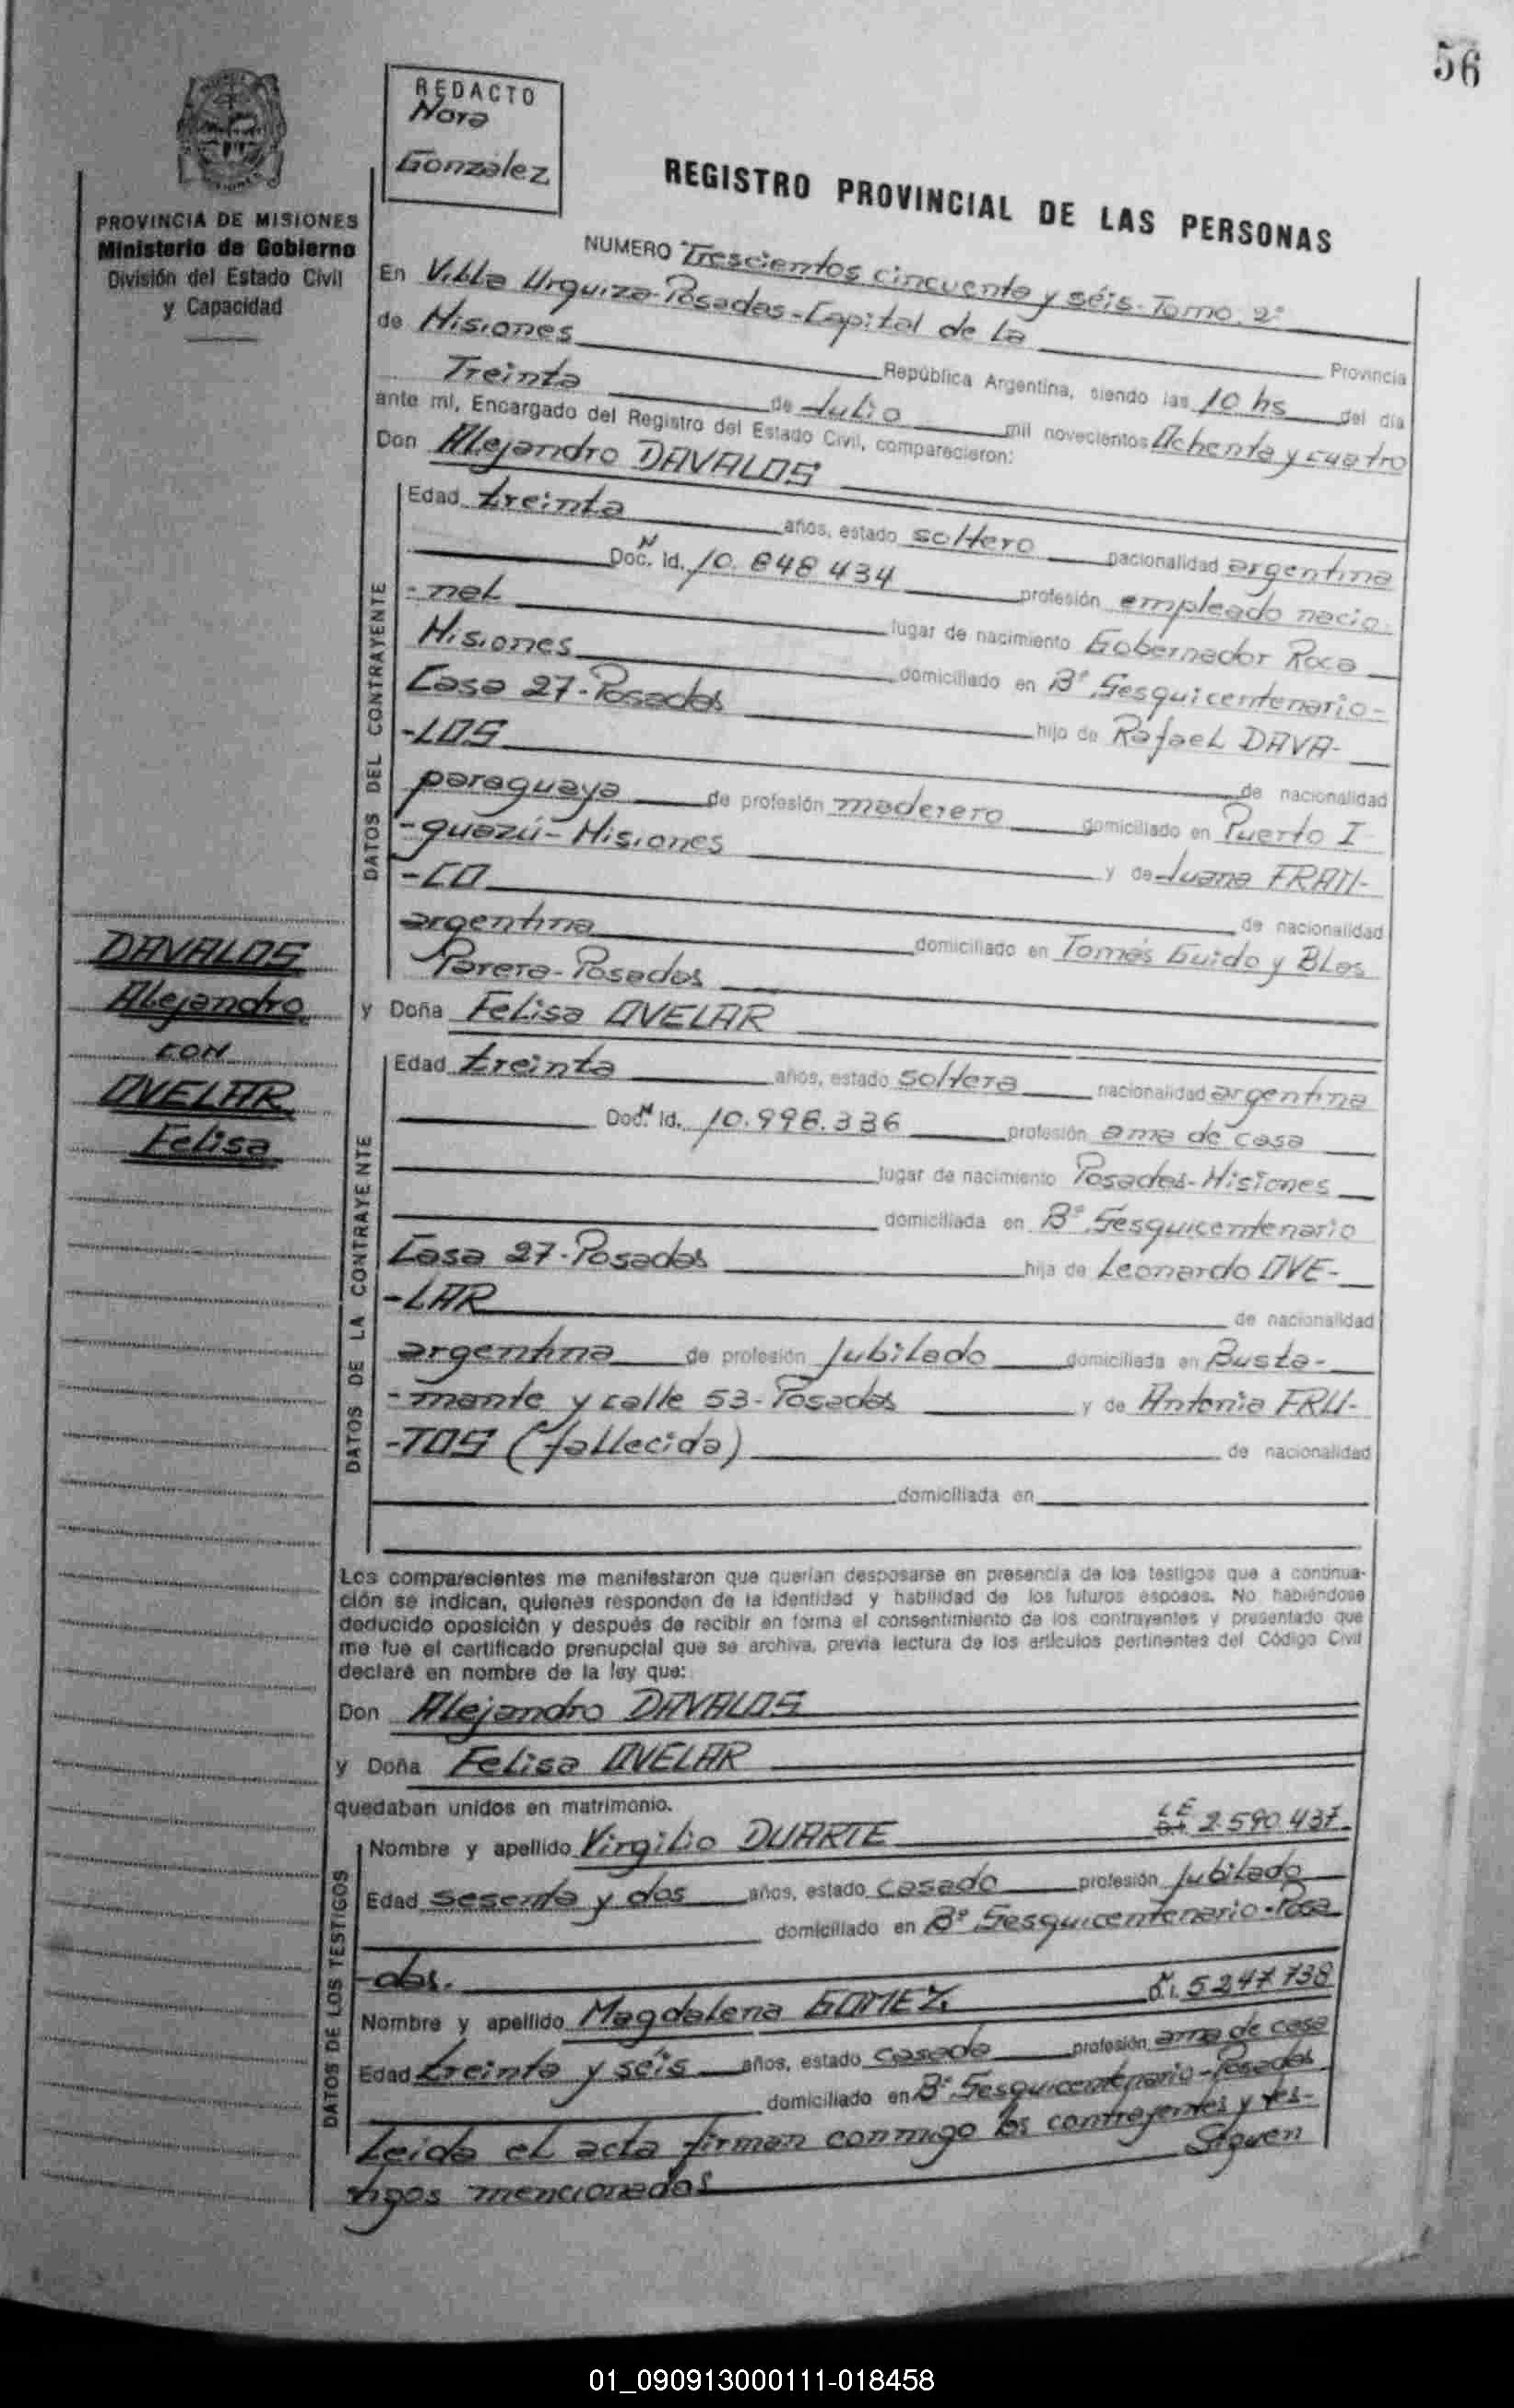 56
REDACTO
Nora
González
REGISTRO PROVINCIAL DE LAS PERSONAS
PROVINCIA DE MISIONES
Ministerio de Gobierno
División del Estado Civil
y Capacidad
NUMERO Trescientos cincuenta y séis-Tomo 2º
En Villa Urquiza-Posadas-Capital de la Provincia
de Misiones República Argentina, siendo las 10 hs del día
Treinta de Julio mil novecientos Ochenta y cuatro
ante mí, Encargado del Registro del Estado Civil, comparecieron:
Don Alejandro DAVALOS
DATOS DEL CONTRAYENTE
Edad treinta años, estado soltero nacionalidad argentina
Doc. N Id. 10.848.434 profesión empleado nacio-
-nal lugar de nacimiento Gobernador Roca
Misiones domiciliado en Bº Sesquicentenario-
Casa 27-Posadas hijo de Rafael DAVA-
-LOS de nacionalidad
paraguaya de profesión maderero domiciliado en Puerto I-
-guazú-Misiones y de Juana FRAN-
-CO de nacionalidad
argentina domiciliado en Tomás Guido y Blas
Parera-Posadas
y Doña Felisa OVELAR
DAVALOS
Alejandro
CON
OVELAR
Felisa
DATOS DE LA CONTRAYENTE
Edad treinta años, estado soltera nacionalidad argentina
Doc. N Id. 10.998.336 profesión ama de casa
lugar de nacimiento Posadas-Misiones
domiciliada en Bº Sesquicentenario
Casa 27-Posadas hija de Leonardo OVE-
-LAR de nacionalidad
argentina de profesión Jubilado domiciliado en Busta-
-mante y calle 53-Posadas y de Antonia FRU-
-TOS (fallecida) de nacionalidad
domiciliada en
Los comparecientes me manifestaron que querían desposarse en presencia de los testigos que a continua-
ción se indican, quienes responden de la identidad y habilidad de los futuros esposos. No habiéndose
deducido oposición y después de recibir en forma el consentimiento de los contrayentes y presentado que
me fue el certificado prenupcial que se archiva, previa lectura de los artículos pertinentes del Código Civil
declaré en nombre de la ley que:
Don Alejandro DAVALOS
y Doña Felisa OVELAR
quedaban unidos en matrimonio.
DATOS DE LOS TESTIGOS
Nombre y apellido Virgilio DUARTE LE 2.590.437
Edad sesenta y dos años, estado casado profesión Jubilado
domiciliado en Bº Sesquicentenario-Posa
-das.
Nombre y apellido Magdalena GOMEZ 5.247.738
Edad treinta y séis años, estado casada profesión ama de casa
domiciliado en Bº Sesquicentenario-Posadas
Leida el acta firman conmigo los contrayentes y tes-
tigos mencionados Siguen
01_090913000111-018458